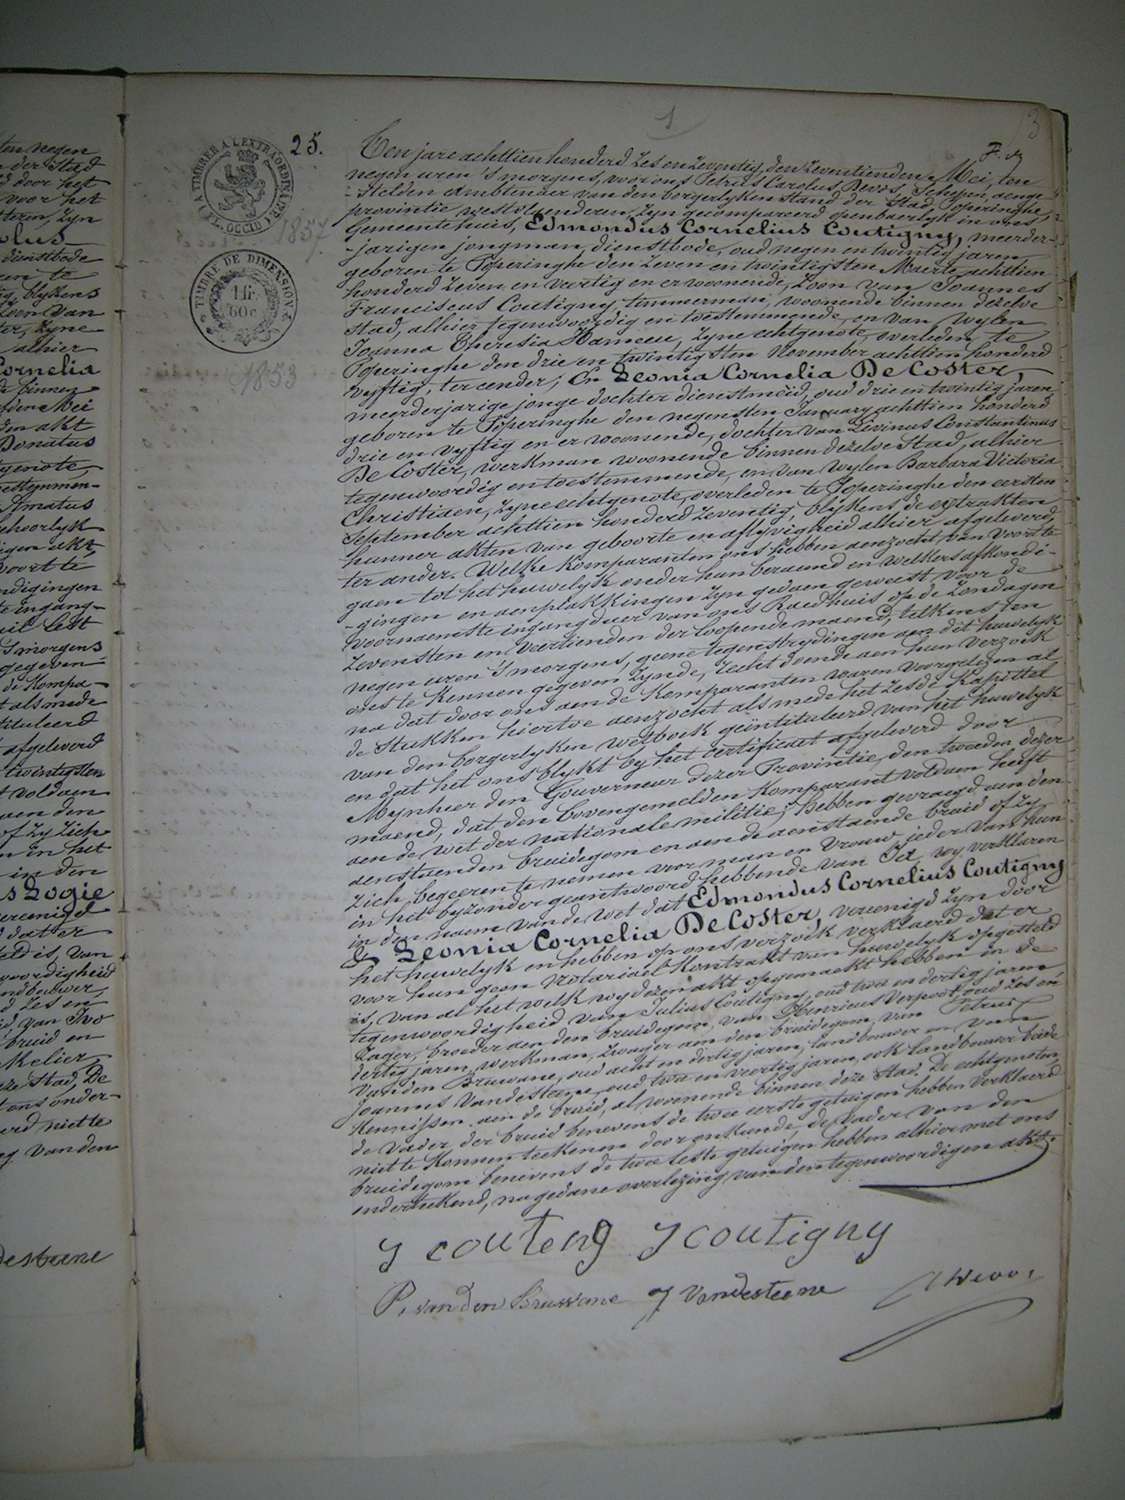 1
3
25.
TIMBRE A L'EXTRAORDINAIRE
FL. OCCIDT.
1857
TIMBRE DE DIMENSION
1 fr.
60 c
1853
Ten jare achttien honderd zes en zeventig, den zeventienden Mei, ten
negen uren 's morgens, voor ons Petrus Carolus Devos, Schepen, aenge-
-stelden ambtenaer van den borgerlyken stand der Stad Poperinghe,
provintie westvlaenderen, zyn gecompareerd openbaerlyk in ons
Gemeentehuis, Edmondus Cornelius Coutigny, meerder-
-jarigen jongman, dienstbode, oud negen en twintig jaren,
geboren te Poperinghe den zeven en twintigsten Maerte achttien
honderd zeven en veertig en er woonende, zoon van Joannes
Franciscus Coutigny, timmerman, woonende binnen dezelve
Stad, alhier tegenwoordig en toestemmende, en van wylen
Joanna Theresia Hameeu, zyne echtgenote, overleden te
Poperinghe den drie en twintigsten November achttien honderd
vyftig, ter eender; En Leonia Cornelia De Coster,
meerderjarige jonge dochter dienstmeid, oud drie en twintig jaren,
geboren te Poperinghe den negensten January achttien honderd
drie en vyftig en er woonende, dochter van Livinus Constantinus
De Coster, werkman woonende binnen dezelve Stad, alhier
tegenwoordig en toestemmende, en van wylen Barbara Victoria
Christiaen, zyne echtgenote, overleden te Poperinghe den eersten
September achttien honderd zeventig, blykens de extrakten
hunner akten van geboorte en aflyvigheid alhier afgeleverd,
ter ander. Welke komparanten ons hebben aenzocht van voort te
gaen tot het huwelyk onder hun beraemd en welkers afkondi-
-gingen en aenplakkingen zyn gedaen geweest voor de
voornaemste ingangdeur van ons Raedhuis op de zondagen
zevensten en veertienden der loopende maend, telkens ten
negen uren 's morgens, geene tegenstrydingen aen dit huwelyk
ons te kennen gegeven zynde, recht doende aen hun verzoek
na dat door ons aen de Komparanten waren voorgelezen al
de Stukken hiertoe aenzocht als mede het zesde Kapittel
van den borgerlyken wetboek geintituleerd van het huwelyk
en dat het ons blykt by het certificaet afgeleverd door
Mynheer den Gouverneur dezer Provintie, den tweeden dezer
maend, dat den bovengemelden Komparant voldaen heeft
aen de wet der nationale militie; Hebben gevraegd aen den
aenstaenden bruidegom en aen de aenstaende bruid of zy
zich begeeren te nemen voor man en vrouw, jeder van hun
in het byzonder geantwoord hebbende van Ja, wy verklaren
in den naem van de wet dat Edmondus Cornelius Coutigny
& Leonia Cornelia De Coster, vereenigd zyn door
het huwelyk en hebben op ons verzoek verklaerd dat er
voor hun geen notariael Kontrakt van huwelyk opgesteld
is, van al het welk wy dezen akt opgemaekt hebben in de
tegenwoordigheid van Julius Coutigny, oud twa en dertig jaren,
Zager, broeder aen den bruidegom, van Henricus Verpoot, oud zes en
dertig jaren, werkman, zwager aen den bruidegom, van Petrus
Van den Bruwane, oud acht en dertig jaren, landbouwer en van
Joannes Vandesteene, oud twa en veertig jaren, ook landbouwer beide
Kennissen aen de bruid, al woonende binnen deze Stad. De echtgenoten
de Vader der bruid benevens de twee eerste getuigen hebben verklaerd
niet te konnen teekenen door onkunde, de Vader van den
bruidegom benevens de twee leste getuigen hebben alhier met ons
onderteekend, na gedane overlezing van den tegenwoordigen akt.
J couteng J coutigny
P. van den Bruwane J Vandesteene
Devos